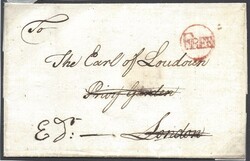 To
The Earl of Loudoun
Privy Garden
Ed:r — London
FREE